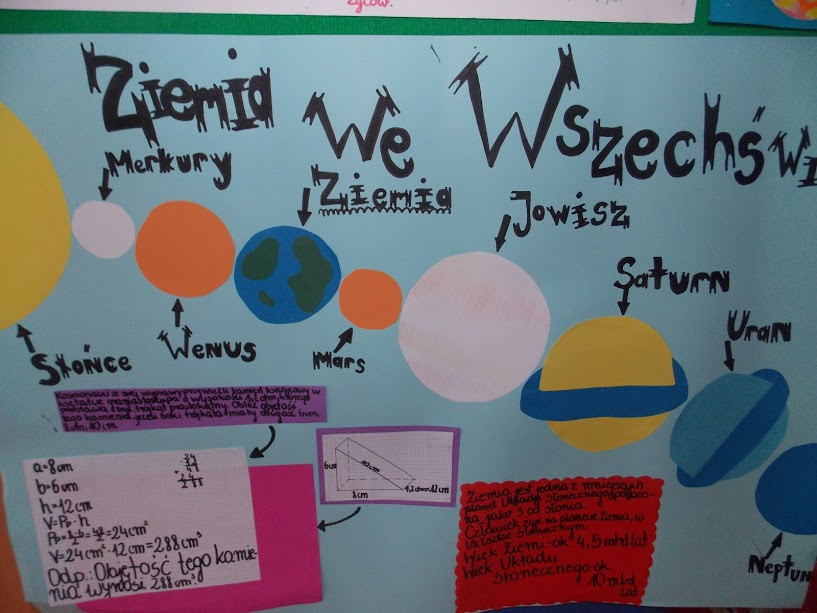 życów.
Ziemia We Wszechświ
Merkury
Ziemia
Jowisz
Saturn
Uran
Słońce
Wenus
Mars
Neptun
Kosmonauci ze swej wyprawy przywieźli kamień księżycowy w
kształcie graniastosłupa o wysokości 1,2 dm, którego
podstawą był trójkąt prostokątny. Oblicz objętość
tego kamienia, jeżeli boki trójkąta miały długość 6cm,
8cm, 10 cm.
a=8cm
b=6cm
h=12cm
V=Pp·h
Pp=
=24cm²
V=24cm²·12cm=288cm³
Odp.: Objętość tego kamie-
nia wynosi 288cm³
24
6cm
10cm
8cm
1,2dm=12cm
Ziemia jest jedną z mniejszych
planet Układu Słonecznego położo-
na jako 3 od słońca.
Człowiek żyje na planecie Ziemia, w
Układzie Słonecznym.
Wiek Ziemi-ok 4,5 mld lat
Wiek Układu
Słonecznego-ok.
10 mld
lat